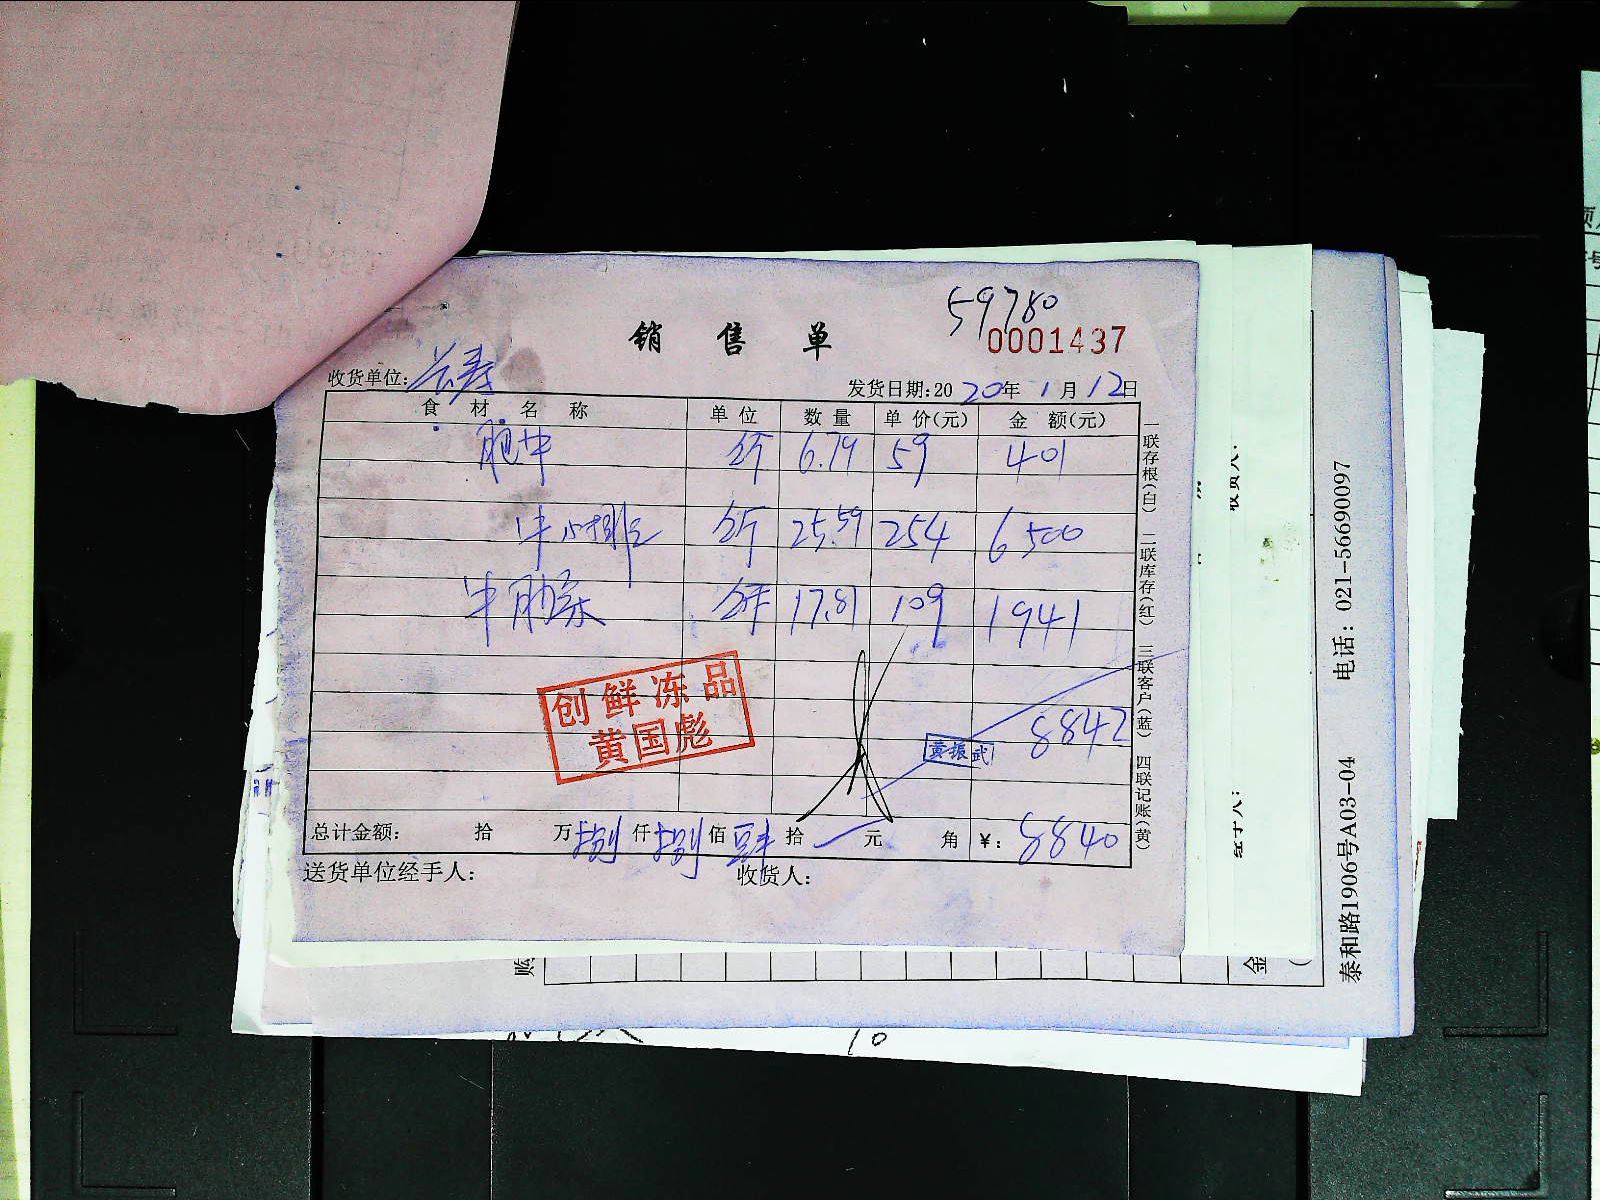 59780
销售单
0001437
收货单位:
发货日期:2020年1月12日
食材名称 单位 数量 单价(元) 金额(元)
肥牛 公斤 6.79 59 401
牛小排 公斤 25.59 254 6500
牛肋条 公斤 17.81 109 1941
创鲜冻品
黄国彪
黄振武
8842
总计金额: 拾 万捌仟捌佰肆拾 元 角 ¥: 8840
送货单位经手人: 收货人:
一联存根(白) 二联库存(红) 三联客户(蓝) 四联记账(黄)
泰和路1906号A03-04 电话: 021-56690097
购
金
10